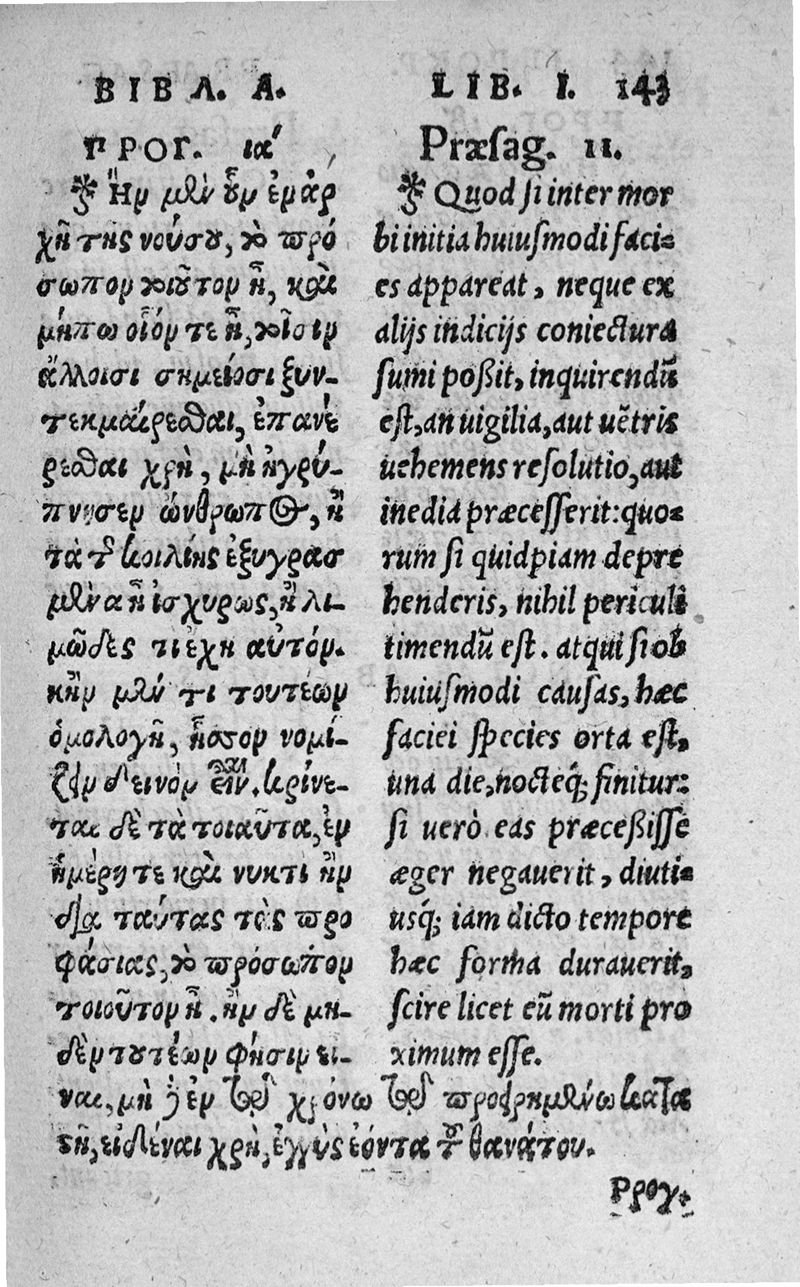 ΒΙΒΛ. Α.
ΠΡΟΓ. ια'
Ἢν μὲν οὖν ἐν ἀρ
χῇ τῆς νούσου, τὸ πρό
σωπον τοιοῦτον ᾖ, καὶ
μήπω οἷόν τε ᾖ, τοῖσιν
ἄλλοισι σημείοισι ξυν-
τεκμαίρεσθαι, ἐπανέ
ρεσθαι χρὴ, μὴ ἠγρύ-
πνησεν ὥνθρωπος, ἢ
τὰ τῆς κοιλίης ἐξυγρασ
μένα ἦ ἰσχυρῶς, ἢ λι-
μῶδες τι ἔχῃ αὐτόν.
κἢν μέν τι τουτέων
ὁμολογῇ, ἧσσον νομί-
ζειν δεινὸν εἶναι. κρίνε-
ται δὲ τὰ τοιαῦτα, ἐν
ἡμέρῃ τε καὶ νυκτὶ ἢν
διὰ ταύτας τὰς προ
φάσιας, τὸ πρόσωπον
τοιοῦτον ᾖ. ἢν δὲ μη-
δὲν τουτέων φήσιν εἶ-
ναι, μὴ δ' ἐν τῷ χρόνῳ τῷ προειρημένῳ κατα
στῇ, εἰδέναι χρὴ, ἐγγὺς ἐόντα τοῦ θανάτου.
LIB. I. 143
Præsag. 11.
Quod si inter mor
bi initia huiusmodi faci-
es appareat, neque ex
alijs indicijs coniectura
sumi poßit, inquirendū
est, an uigilia, aut uētris
uehemens resolutio, aut
inedia præcesserit: quo-
rum si quidpiam depre
henderis, nihil periculi
timendū est. atqui si ob
huiusmodi causas, hæc
faciei species orta est,
una die, nocteq́; finitur:
si uerò eas præceßisse
æger negauerit, diuti-
usq́; iam dicto tempore
hæc forma durauerit,
scire licet eū morti pro
ximum esse.
Προγ.